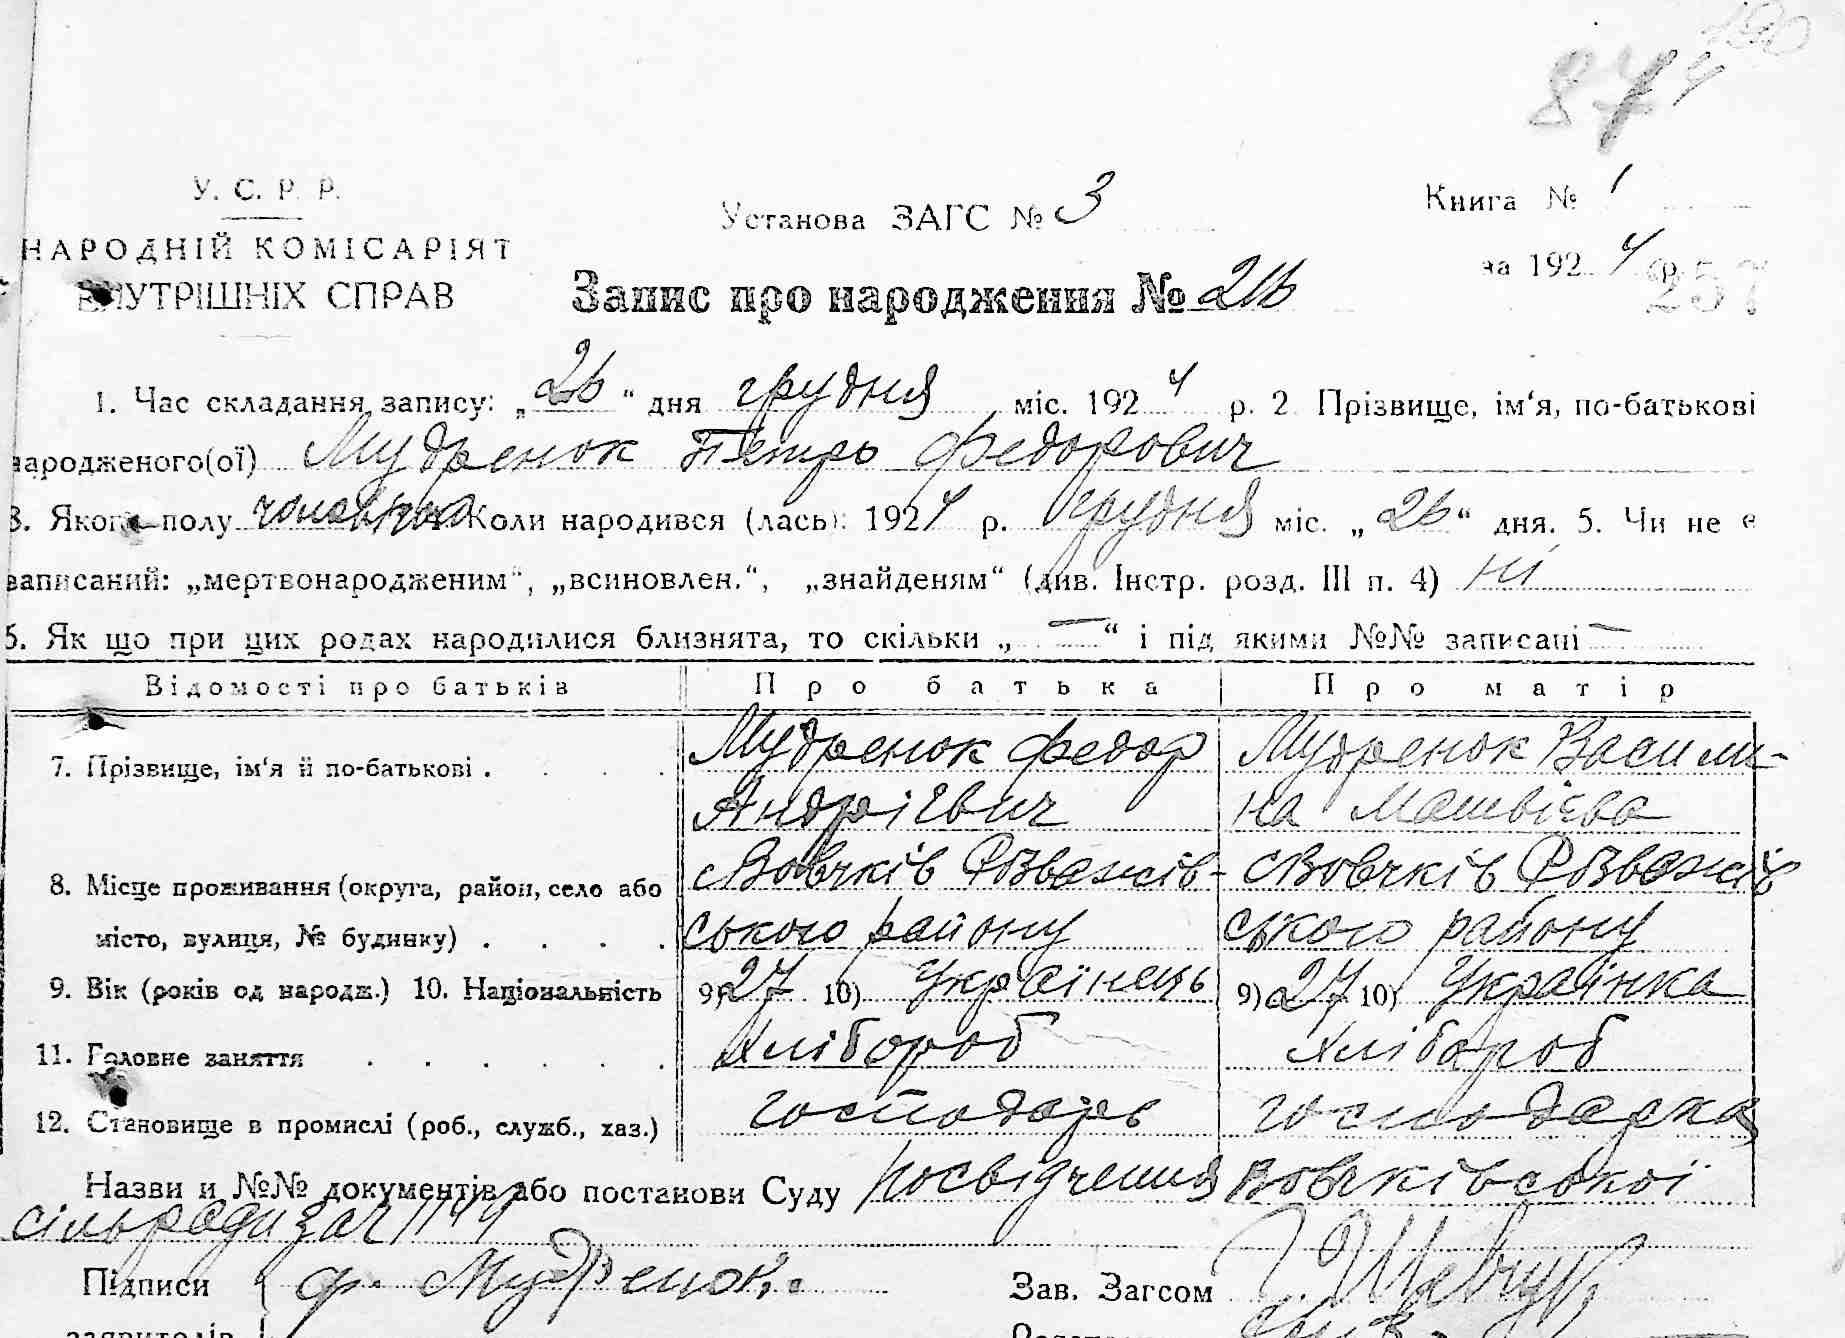 У. С. Р. Р.
НАРОДНІЙ КОМІСАРІЯТ
ВНУТРІШНІХ СПРАВ
Установа ЗАГС № 3
Книга № 1
за 1924
257
874
Запис про народження № 216
1. Час складання запису: „26“ дня грудня міс. 1924 р. 2 Прізвище, ім‘я, по-батькові
народженого(ої) Мудренок Петро Федорович
3. Якого полу 4. Коли народився (лась): 1924 р. грудня міс. „26“ дня. 5. Чи не є
записаний: „мертвонародженим“, „всиновлен.“, „знайденям“ (див. Інстр. розд. III п. 4) ні
6. Як що при цих родах народилися близнята, то скільки „—“ і під якими №№ записані —
Відомості про батьків Про батька Про матір
7. Прізвище, ім‘я й по-батькові . . . . Мудренок Федор Мудренок Васили-
Андрієвич на Матвієва
8. Місце проживання (округа, район, село або Вовчків Розважів- Вовчків Розважів
місто, вулиця, № будинку) . . . . ського району ського району
9. Вік (років од народж.) 10. Національність 9) 27 10) Українець 9) 27 10) Українка
11. Головне заняття . . . . . . Хлібороб Хлібороб
12. Становище в промислі (роб., служб., хаз.) господарь господарка
Назви и №№ документів або постанови Суду посвідчення Вовчківської
сільради за ч 1144
Підписи ф. Мудренок. Зав. Загсом Шевчук
заявителів